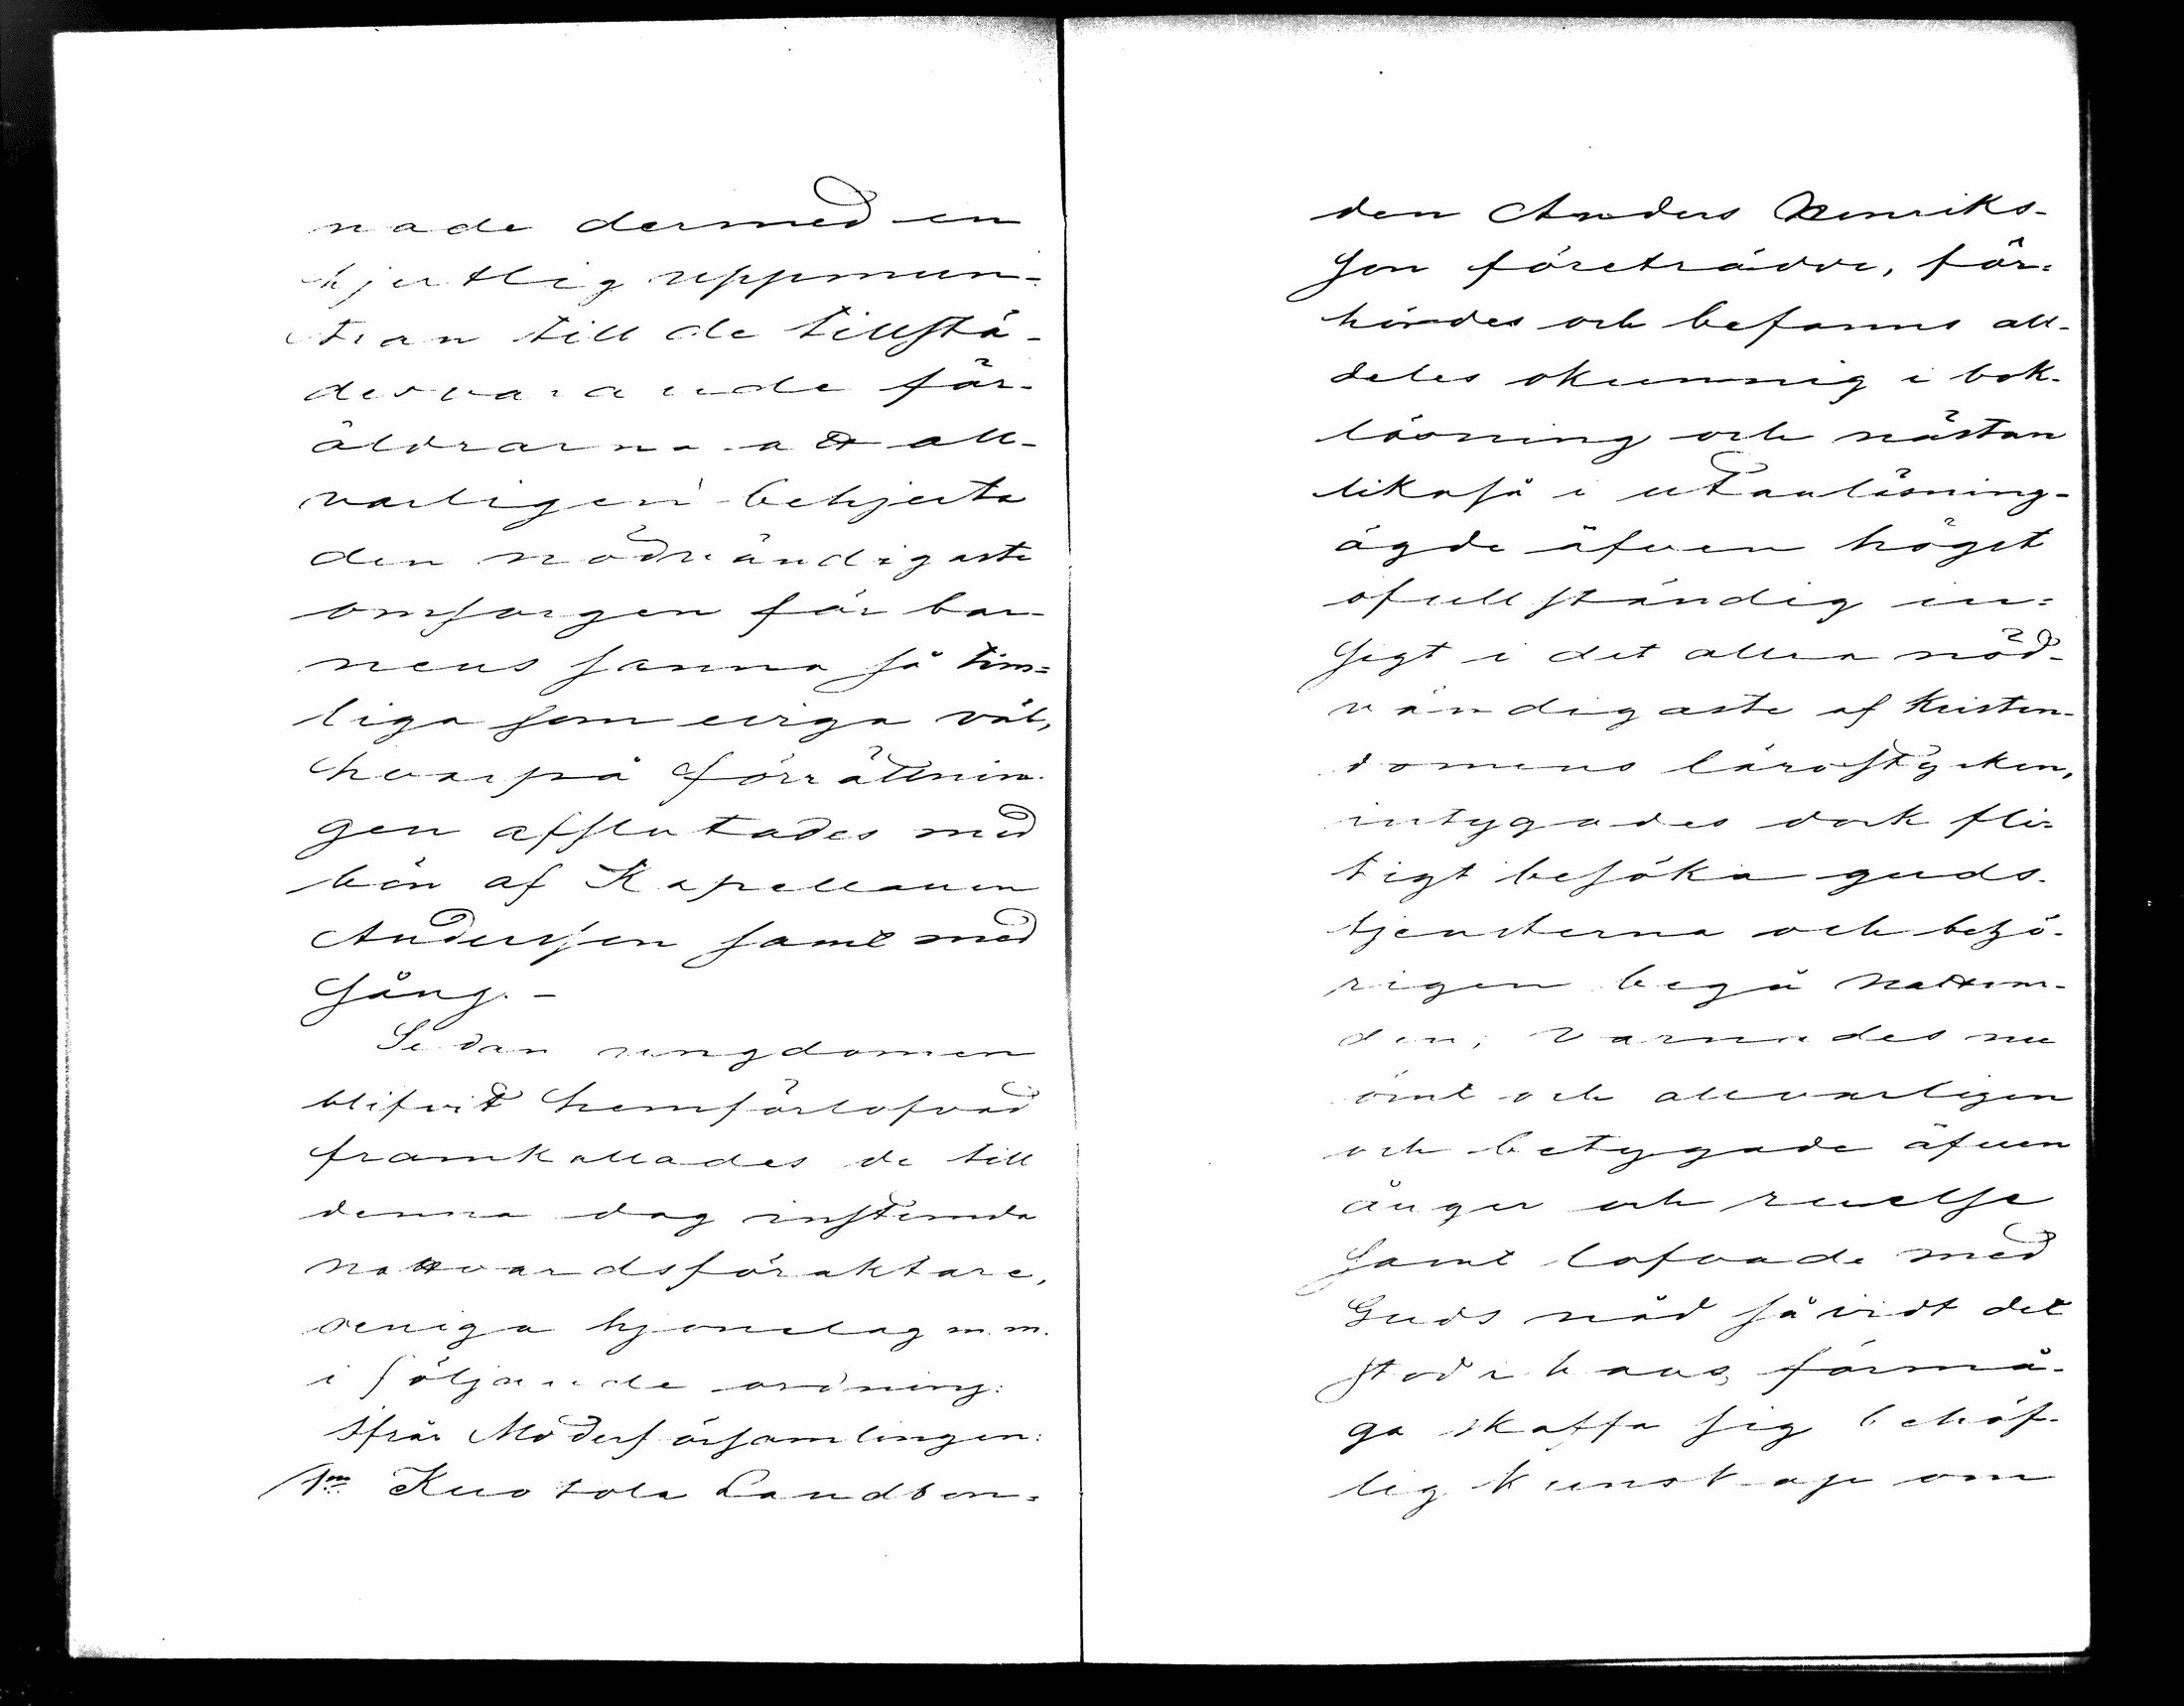 nade dermed en
hjertlig uppmun-
tran till de tillstä-
desvarande för-
äldrarna att all-
varligen behjerta
den nödvändigaste
omsorgen för bar-
nens sanna så tim-
liga som eviga väl,
hvarpå förrättnin-
gen afslutades med
bön af Kapellanen
Andersson samt med
Sång. -
Sedan ungdomen
blifvit hemförlofvad
framkallades de till
denna dag instemda
nattvardsföraktare,
oeniga hjonelag m. m.
i följande ordning:
Ifrån Moderförsamlingen:
1m Kuotola Landbon-
den Anders Henriks-
son företrädde, för-
hördes och befanns all-
deles okunnig i bok-
läsning och nästan
likaså i utanläsning-
ägde äfven högst
ofullständig in-
sigt i det allra nöd-
vändigaste af Kristen-
domens lärostycken,
intygades dock fli-
tigt besöka guds-
tjensterna och behö-
rigen begå Nattvar-
den; Varnades nu
ömt och allvarligen
och betygade äfven
ånger och ruelse
samt lofvade med
Guds nåd så vidt det
stod i hans förmå-
ga skaffa sig behöf-
lig kunskap om